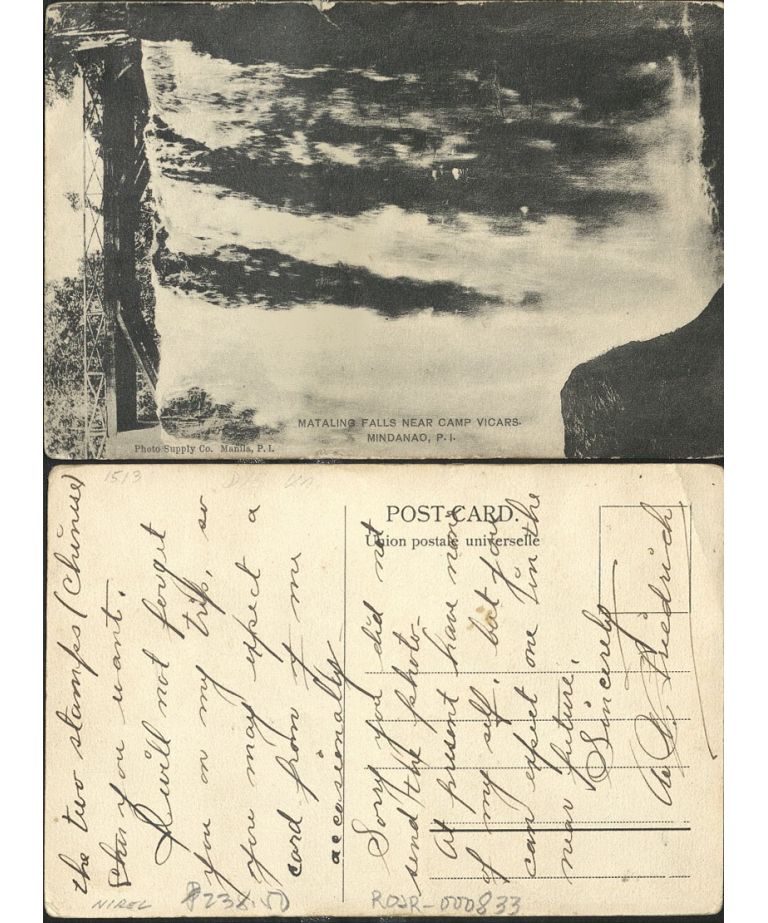 MATALING FALLS NEAR CAMP VICARS.
MINDANAO, P.I.
Photo Supply Co. Manila, P.I.
1513
POST-CARD.
Union postale universelle
the two stamps (Chinese)
you want.
I will not forget
you on my trip, so
you may expect a
card from me
accasionally
Sorry you did not
send the photo-
At present have none
of my self, but you
can expect one in the
near future.
Sincerely
Friedrich
NIREL
P238.50
ROJR-000833